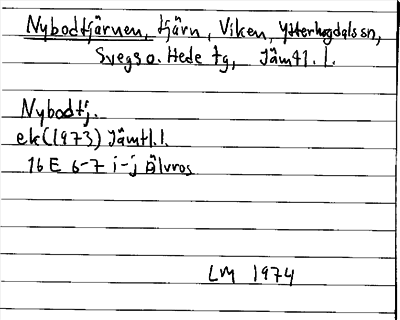 Nybodtjärnen, tjärn, Viken, Ytterhogdals sn,
Svegs o. Hede tg, Jämtl. l.
Nybodtj.
ek (1973) Jämtl. l.
16 E 6-7 i-j Älvros
LM 1974